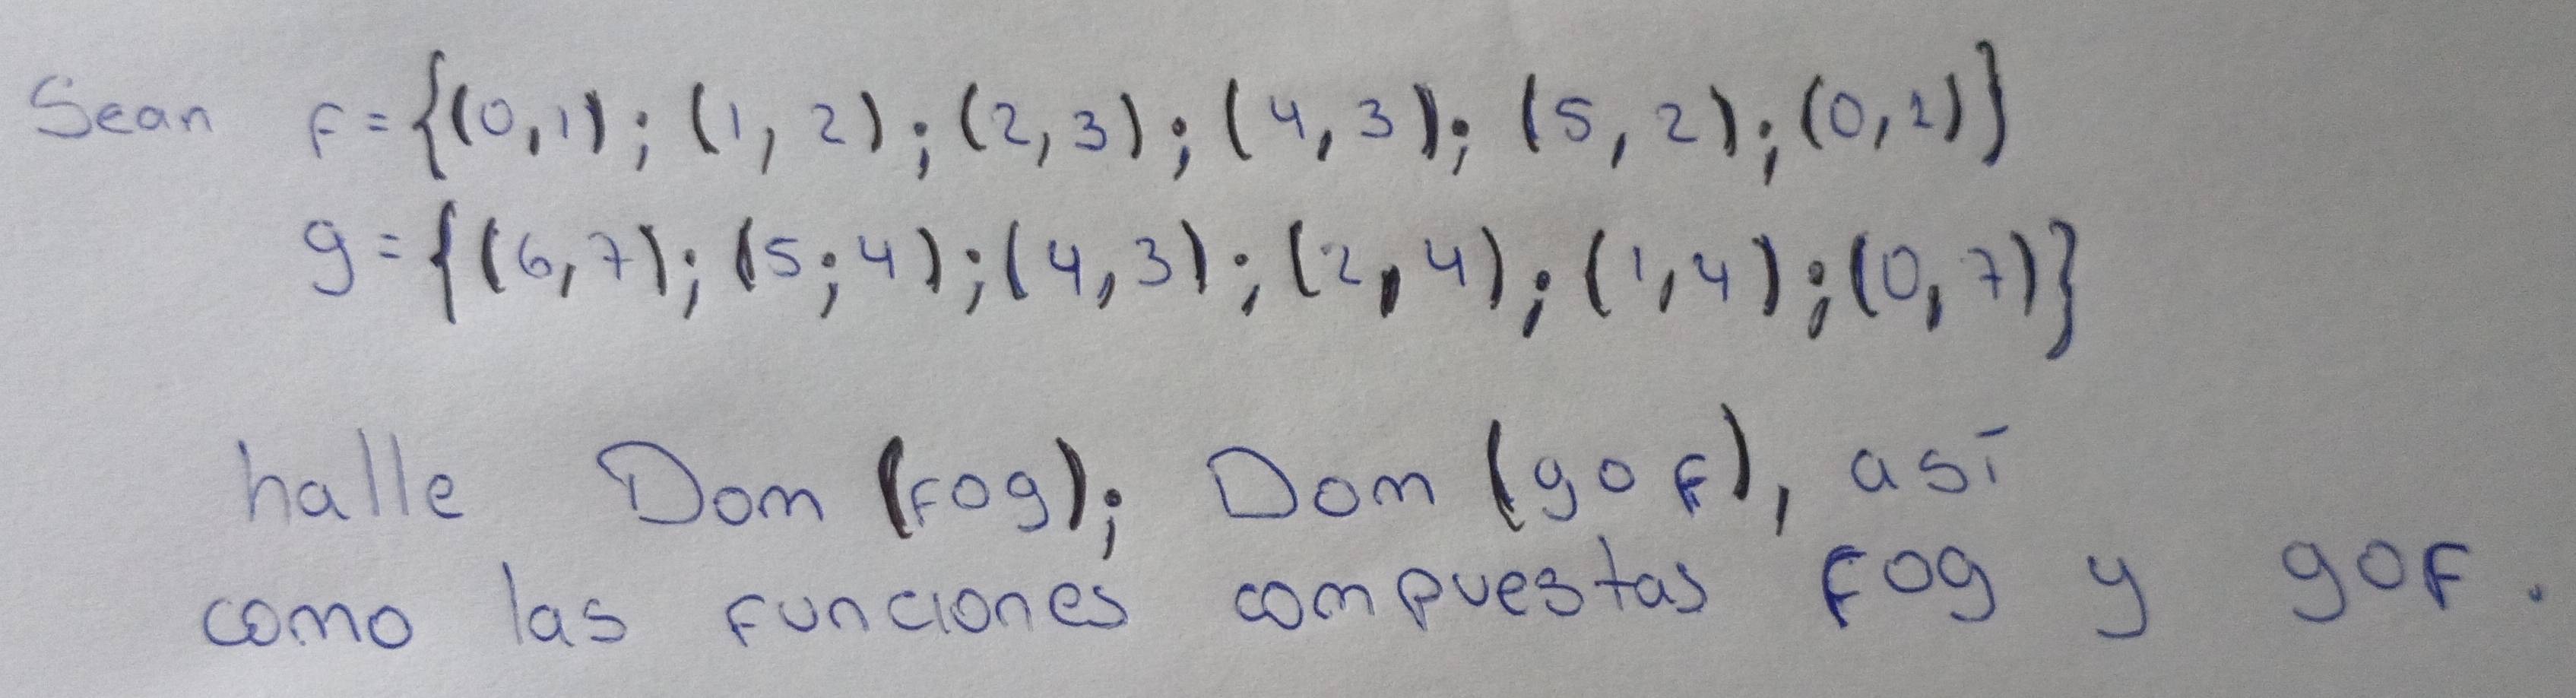 Sean f={(0,1);(1,2);(2,3);(4,3);(5,2);(0,2)}
g={(6,7);(5;4);(4,3);(2,4);(1,4);(0,7)}
halle Dom (fog); Dom (gof), así
como las funciones compuestas fog y gof.